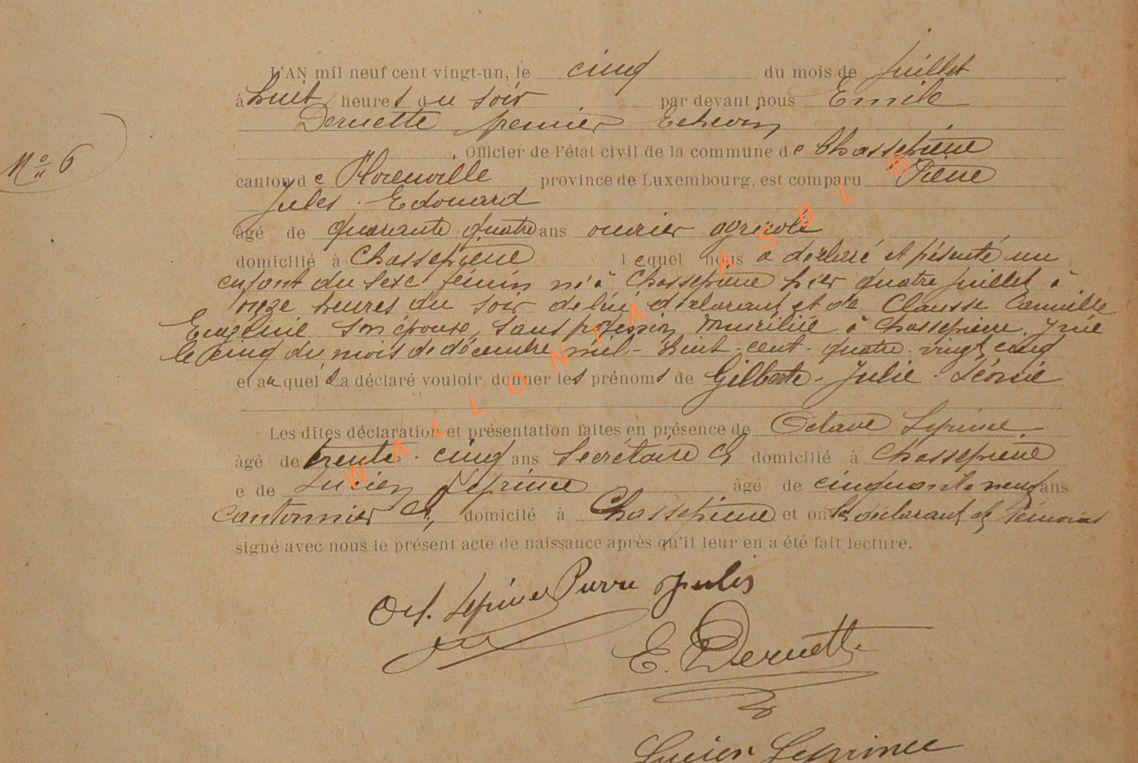 L'AN mil neuf cent vingt-un, le cinq du mois de juillet
à huit heures du soir par devant nous Emile
Deruette premier Echevin
N° 6
, Officier de l'état civil de la commune de Chassepierre
canton de Florenville province de Luxembourg, est comparu Pierre
Jules - Edouard
âgé de quarante-quatre ans ouvrier agricole
domicilié à Chassepierre lequel nous a déclaré et présenté un
enfant du sexe féminin né à Chassepierre hier quatre juillet à
onze heures du soir de lui déclarant, et de Clausse Camille
Eugénie son épouse, sans profession, domiciliée à Chassepierre, y née
le cinq du mois de décembre mil-huit-cent-quatre-vingt-cinq
et auquel il a déclaré vouloir donner les prénoms de Gilberte - Julie - Léonie
Les dites déclaration et présentation faites en présence de Octave Leprince
âgé de trente-cinq ans Secrétaire Cl domicilié à Chassepierre
e de Lucien Leprince âgé de cinquante neuf ans
Cantonnier Cl, domicilié à Chassepierre et ont le déclarant et témoins
signé avec nous le présent acte de naissance après qu'il leur en a été fait lecture.
Oct. Leprince Pierre Jules
E. Deruette
Lucien Leprince
WALLONIA ASBL ®